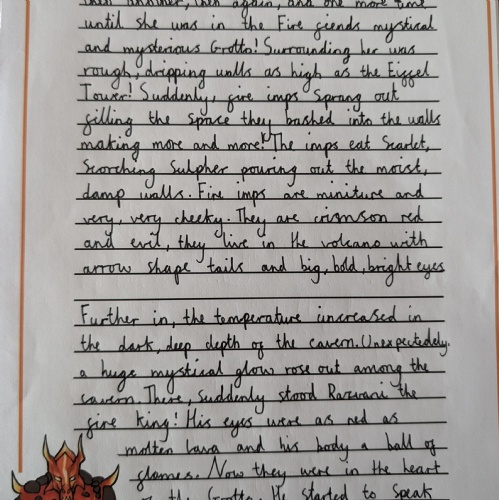 then another, then again, and one more time
until she was in the Fire fiends mystical
and mysterious Grotto! Surrounding her was
rough, dripping walls as high as the Eiffel
Tower! Suddenly, fire imps sprang out
filling the space they bashed into the walls
making more and more! The imps eat Scarlet,
Scorching Sulpher pouring out the moist,
damp walls. Fire imps are miniture and
very, very cheeky. They are crismson red
and evil, they live in the volcano with
arrow shape tails and big, bold, bright eyes
Further in, the temperature increased in
the dark, deep depth of the cavern. Unexpectedely,
a huge mystical glow rose out among the
cavern. There, suddenly stood Razwani the
fire king! His eyes were as red as
molten lava and his body a ball of
flames. Now they were in the heart
of the Grotto. He started to speak